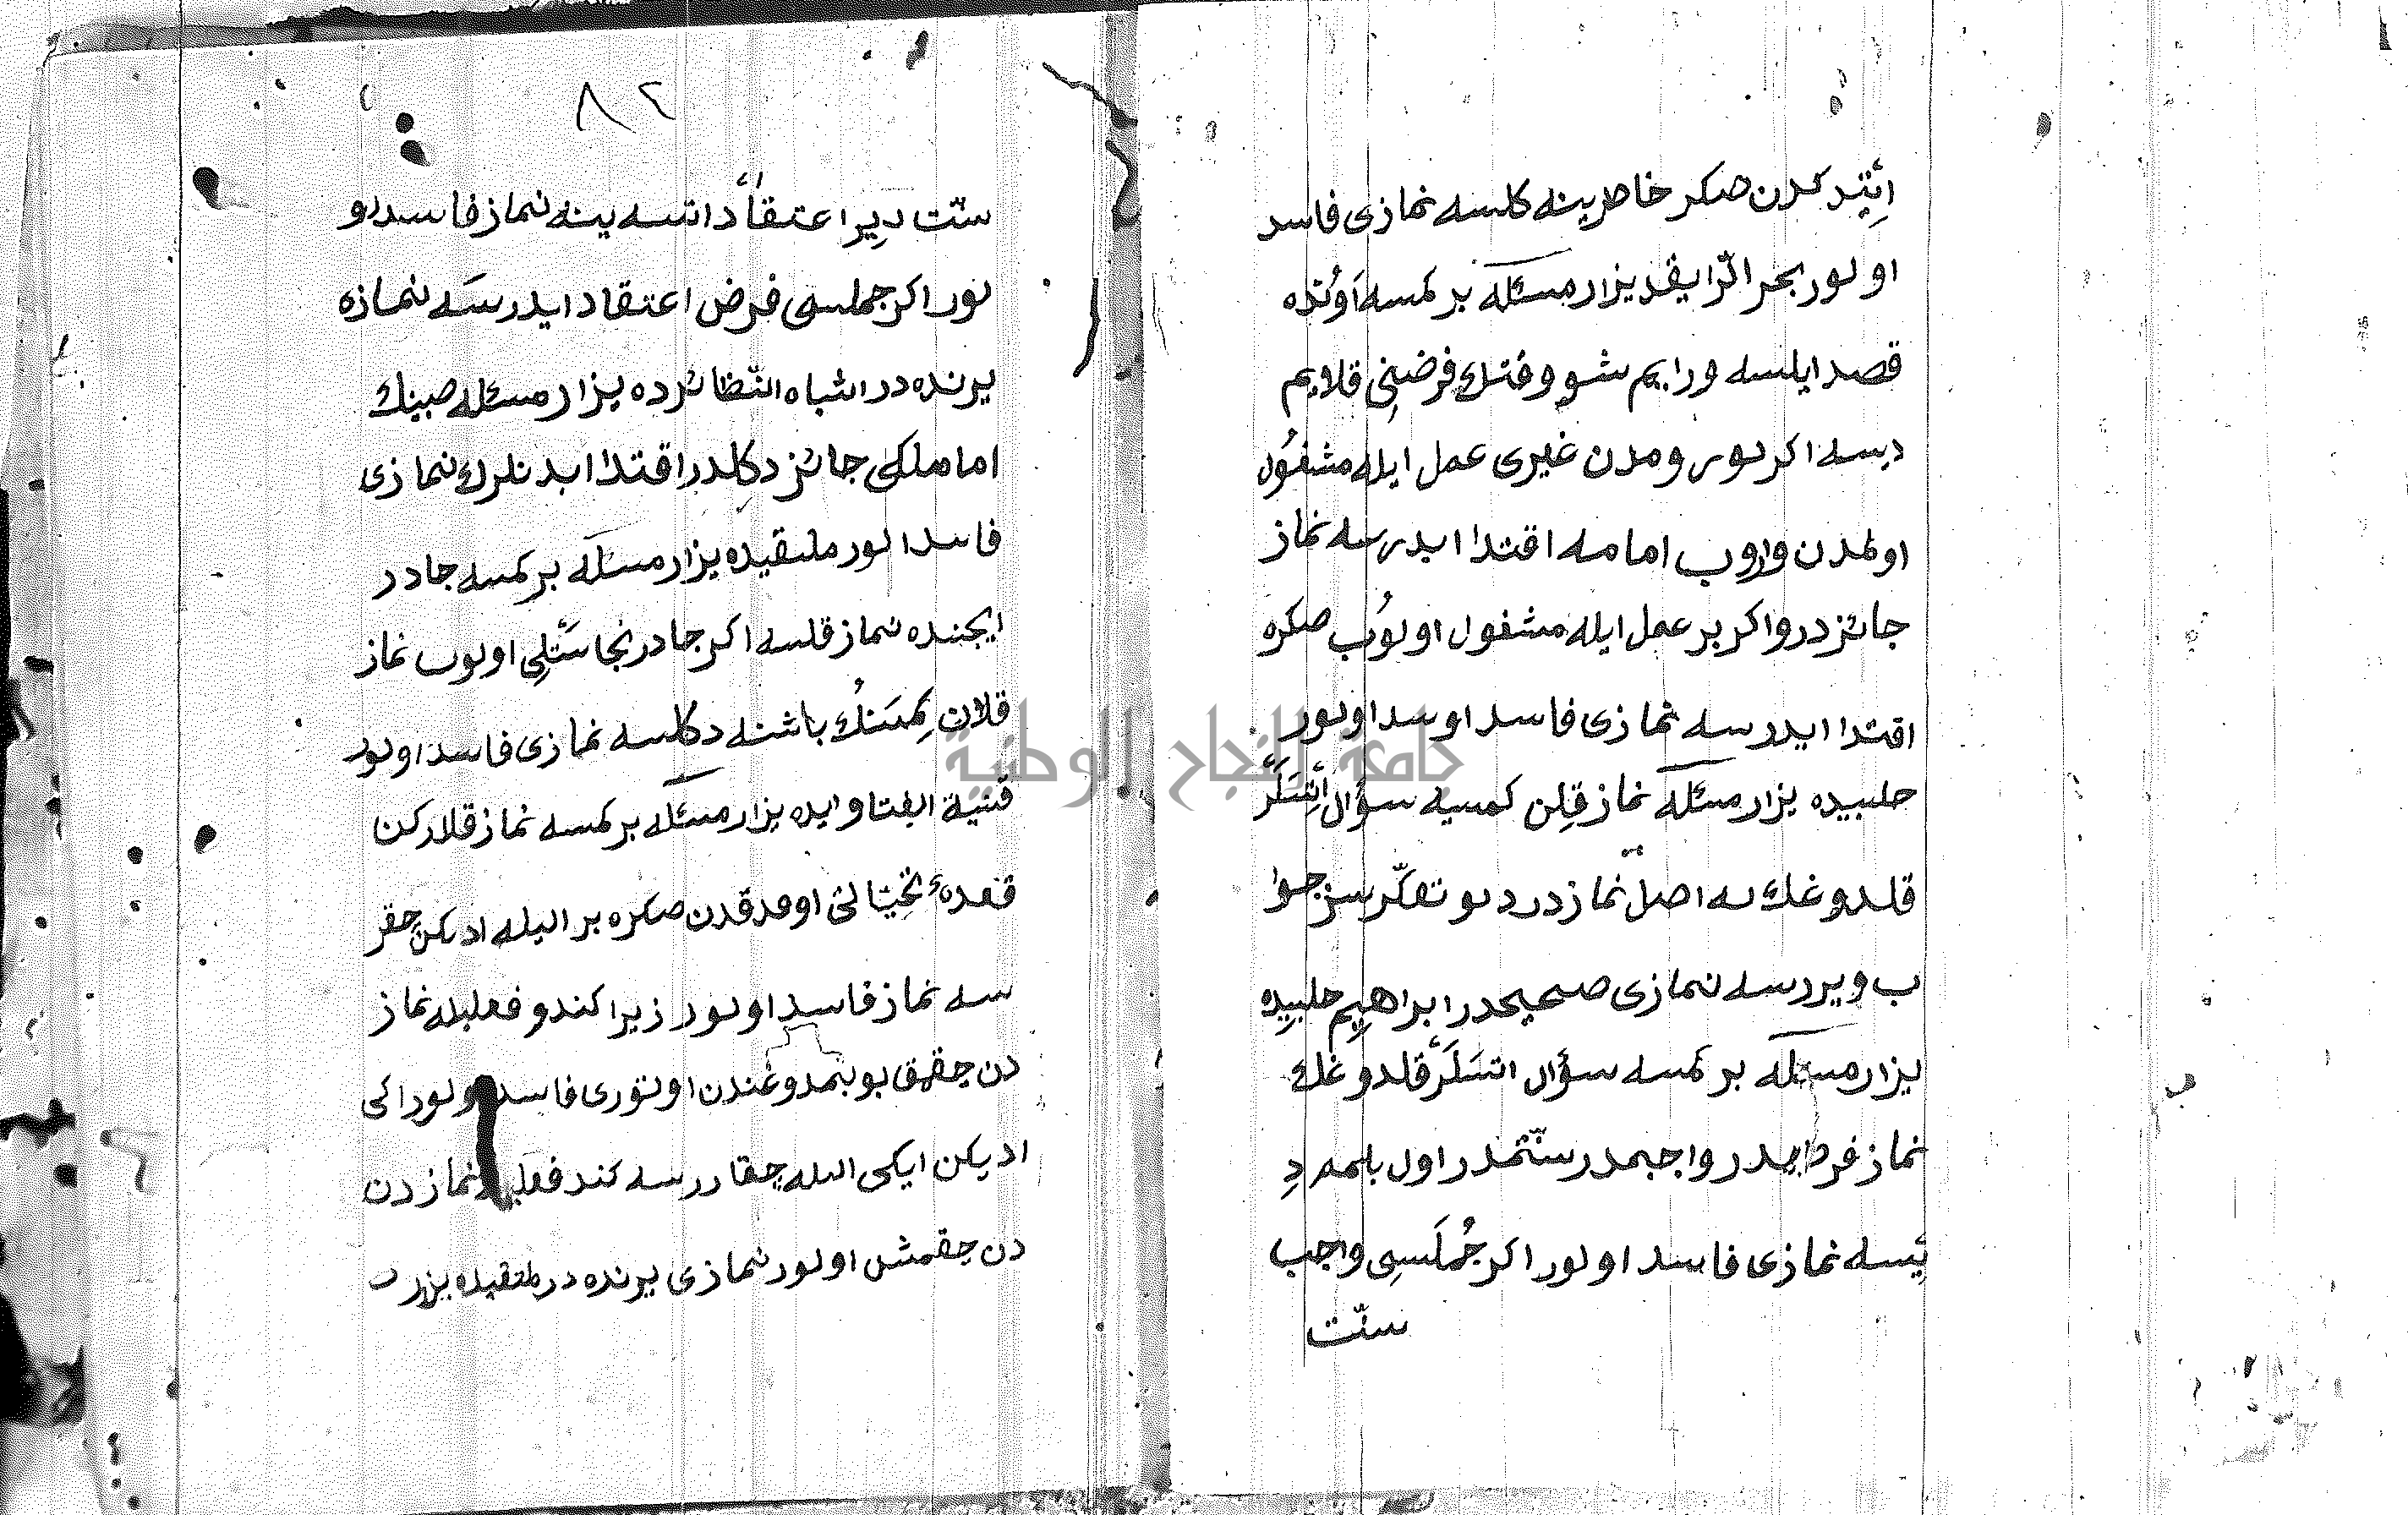 ائتدكدن صكر خاطرينه كلسه نمازى فاسد
اولور بحر الرايقد يزار مسئله بر كمسه اونده
قصد ايلسه ورايم شو وقتك فرضنى قلايم
ديسه اكر يورومدن غيرى عمل ايله مشغول
اولمدن واروب امامه اقتدا ايدرسه نماز
جائز در واكر بر عمل ايله مشغول اولوب صكره
اقتدا ايدرسه نمازى فاسد اولور
حلبيده يزار مسئله نماز قلن كمسيه سؤال اتسلر
قلدوغك نه اصل نمازدر ديو تفكر سز جوا
ب ويررسه نمازى صحيحدر ابراهيم حلبيده
يزار مسئله بر كمسه سؤال اتسلر قلدوغك
نماز فرضميدر واجبمدر سنتمدر اول بلمم د
يسه نمازى فاسد اولور اكر جملسى واجب
سنت
٨٢
سنت دير اعتقاد اتسه ينه نماز فاسد او
لور اكر جملسى فرض اعتقاد ايدرسه نمازه
يرنده در اشباه النظائرده يزار مسئله صبينك
اماملكى جائز دكلدر اقتدا ايدنلرك نمازى
فاسد الور ملتقيده يزار مسئله بر كمسه جادر
ايچنده نماز قلسه اكر جادر نجاستلى اولوب نماز
قلان كمسنك باشنه دكلسه نمازى فاسد اولور
قنية الفتاوايده يزار مسئله بر كمسه نماز قلاركن
قعدهٔ اوقدقدن صكره بر ايله ادكن چقر
سه نماز فاسد اولور زيرا كندو فعليله نماز
دن چقمق بولنمدوغندن اوتورى فاسد اولور اكى
اديكن ايكى ايله چقاررسه كند فعليله نمازدن
دن چقمش اولور نمازى يرنده در ملتقيده يزر